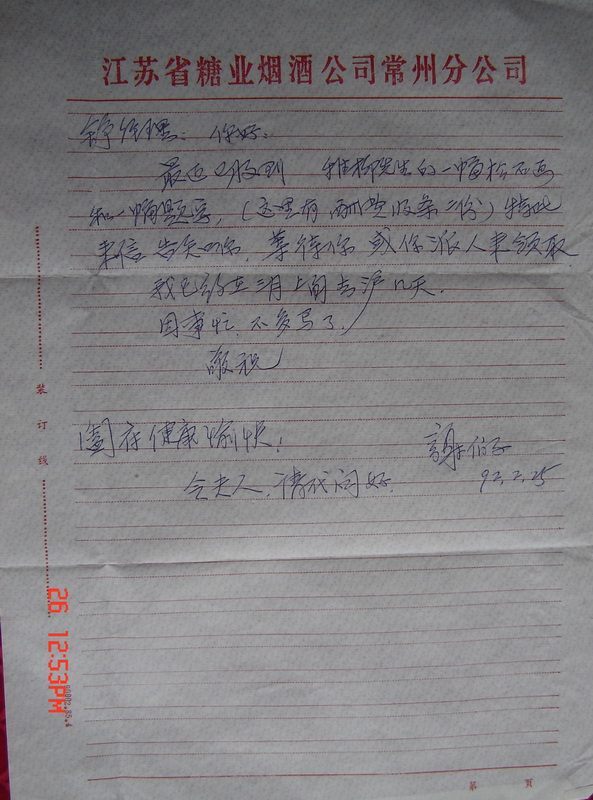 江苏省糖业烟酒公司常州分公司
舒经理：你好：
最近已收到 稚柳先生的一幅松石画
和一幅题字，（这里有酬奖收条二份）特此
来信告知你，等待你或你派人来领取
我已约在三月上旬去沪几天.
因事忙，不多写了，
敬祝
阖府健康愉快！
谢伯子
令夫人，请代问好. 92.2.25
装订线
第 页
26. 12:53PM